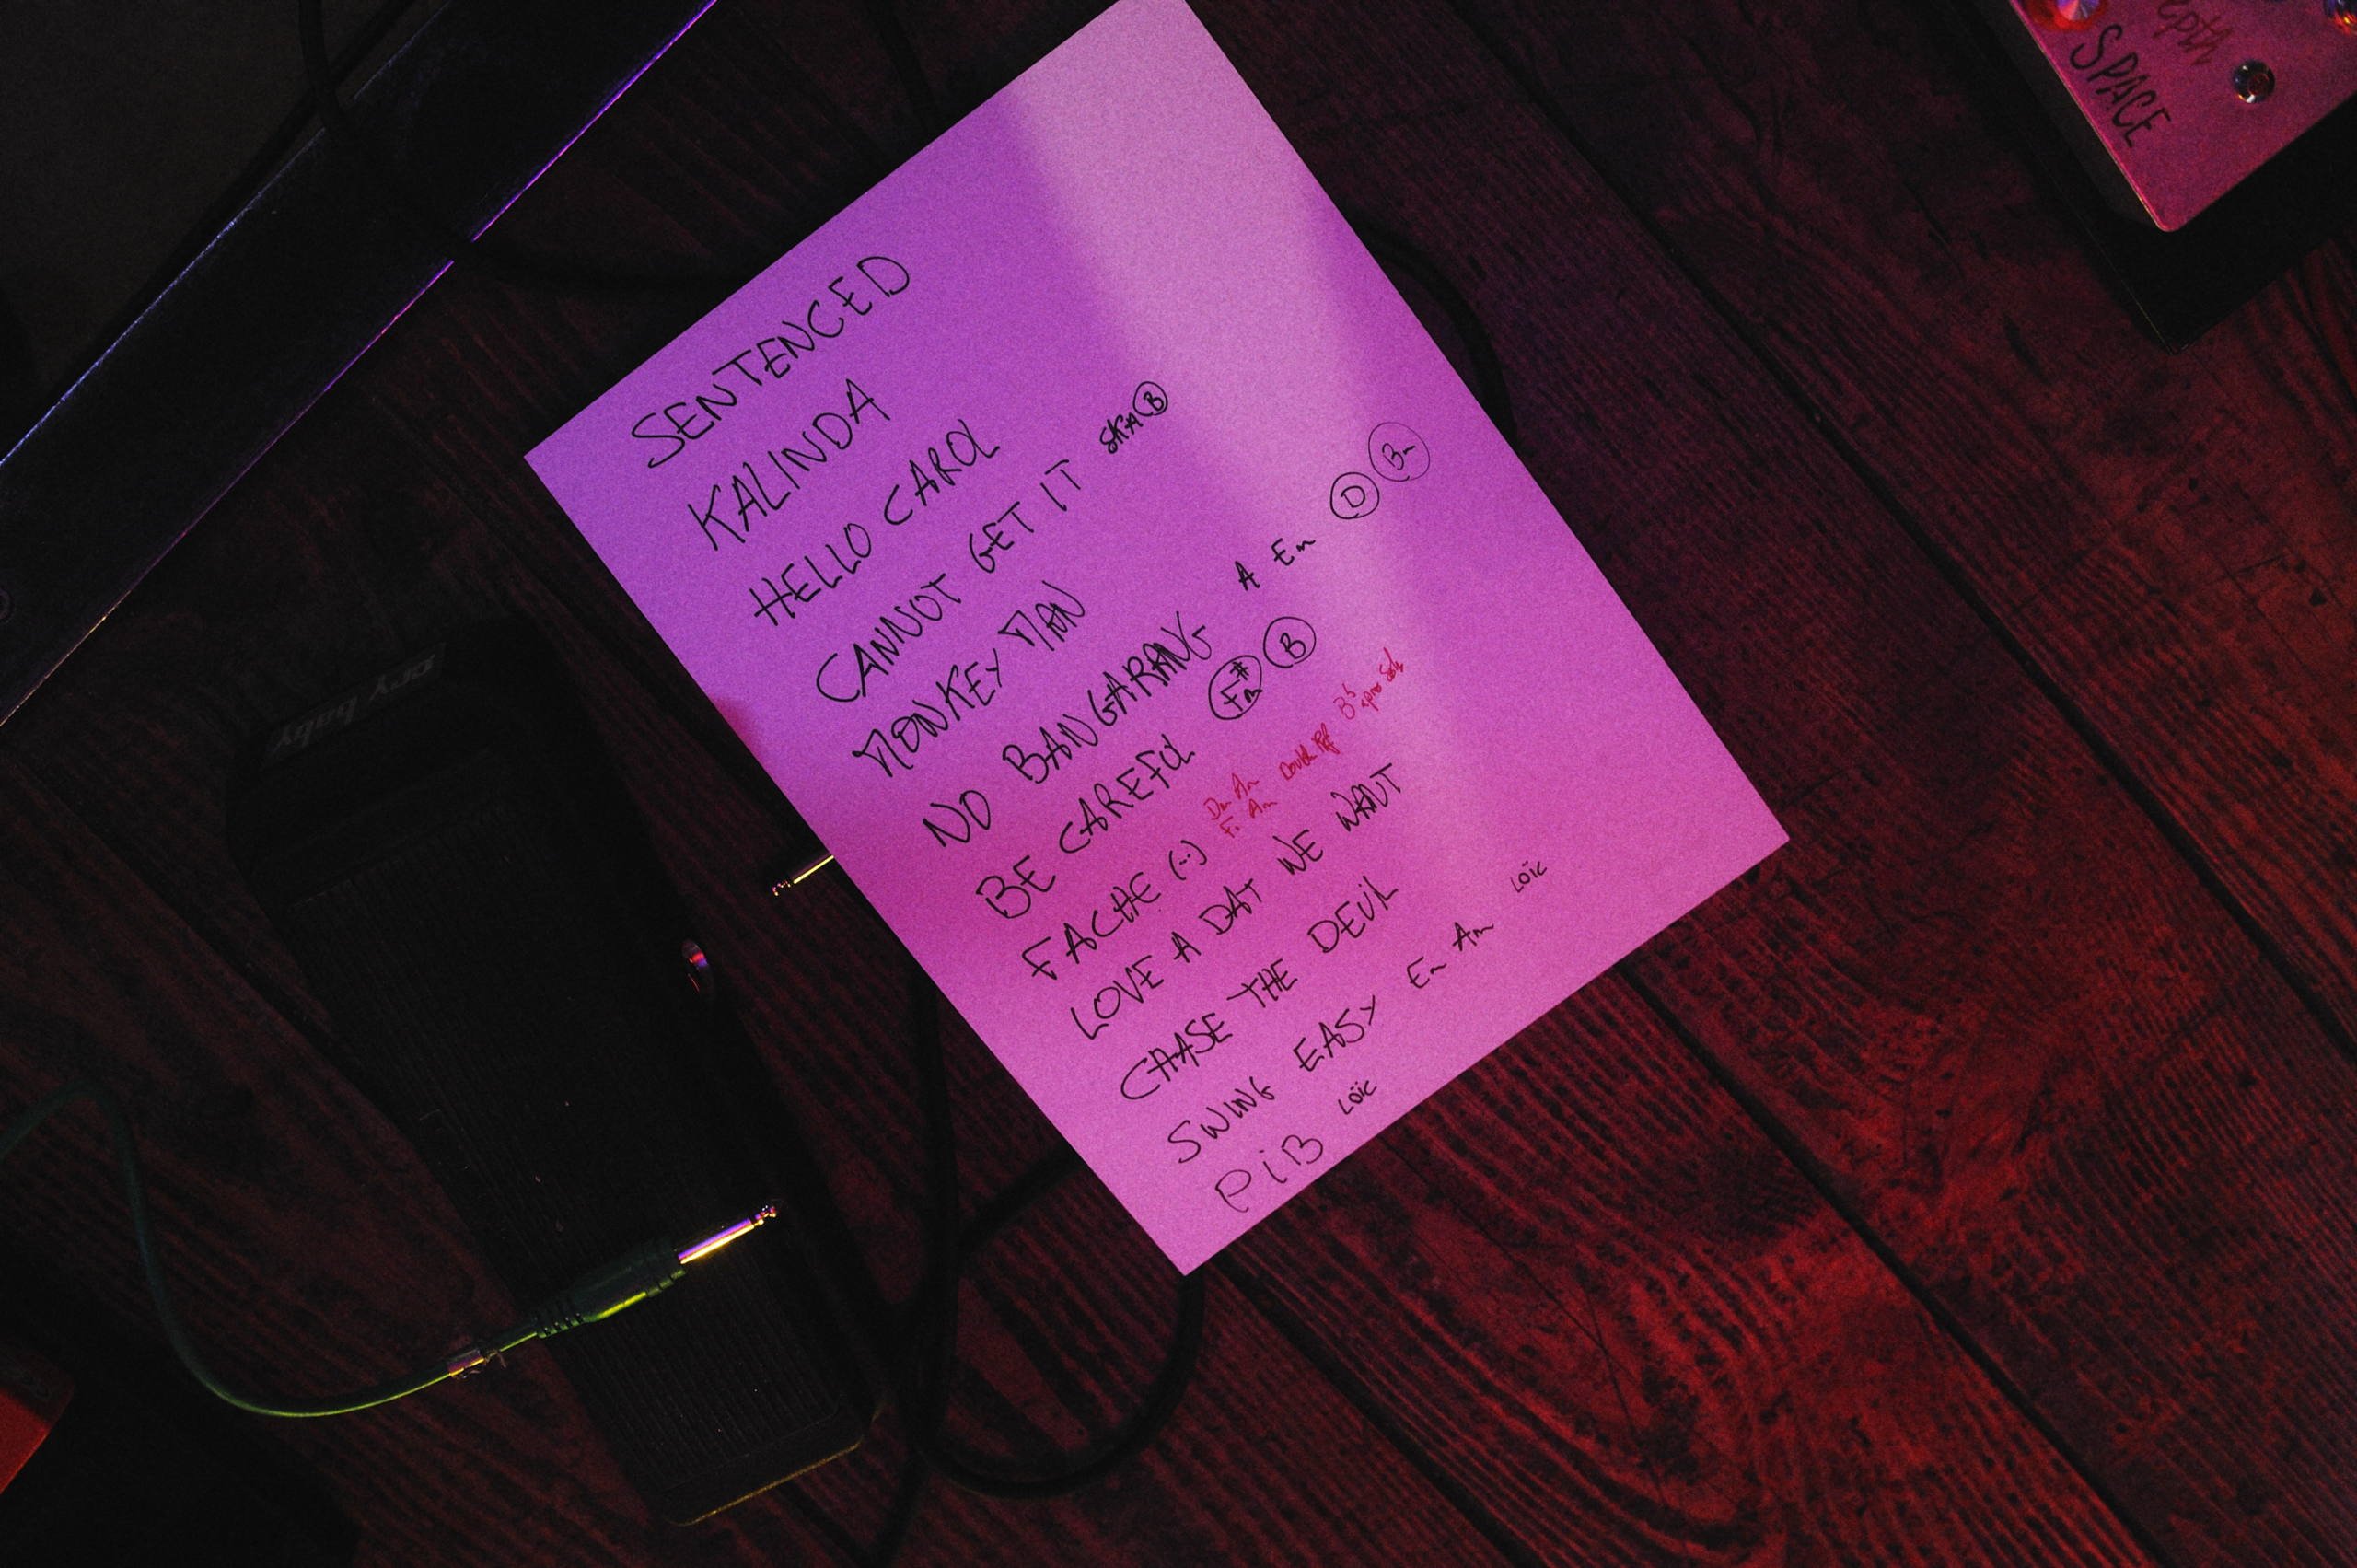 SENTENCED
KALINDA
HELLO CAROL
CANNOT GET IT SKA B
MONKEY MAN
NO BANGARANG A Em D Bm
BE CAREFUL F#m B
FACHE (··) Dm Am DOUBLE Riff
F. Am
LOVE A DAT WE WANT
CHASE THE DEVIL
SWING EASY Em Am LOÏC
PiB LOÏC
cry baby
epth
SPACE